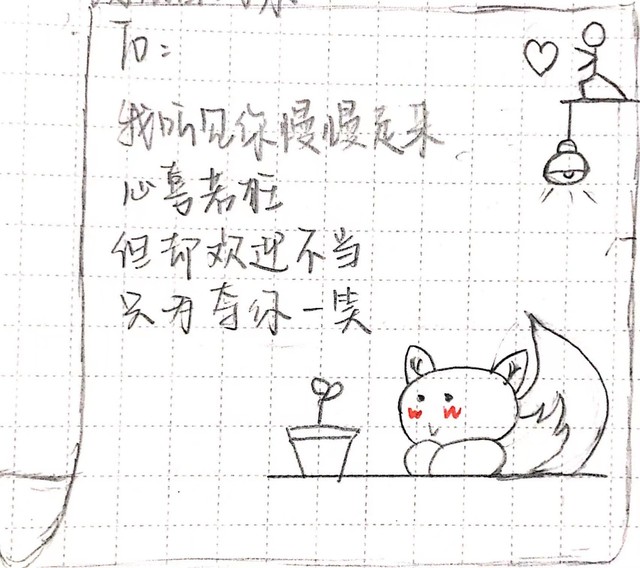 To:
我听见你慢慢走来
心喜若狂
但却欢迎不当
只为夺你一笑